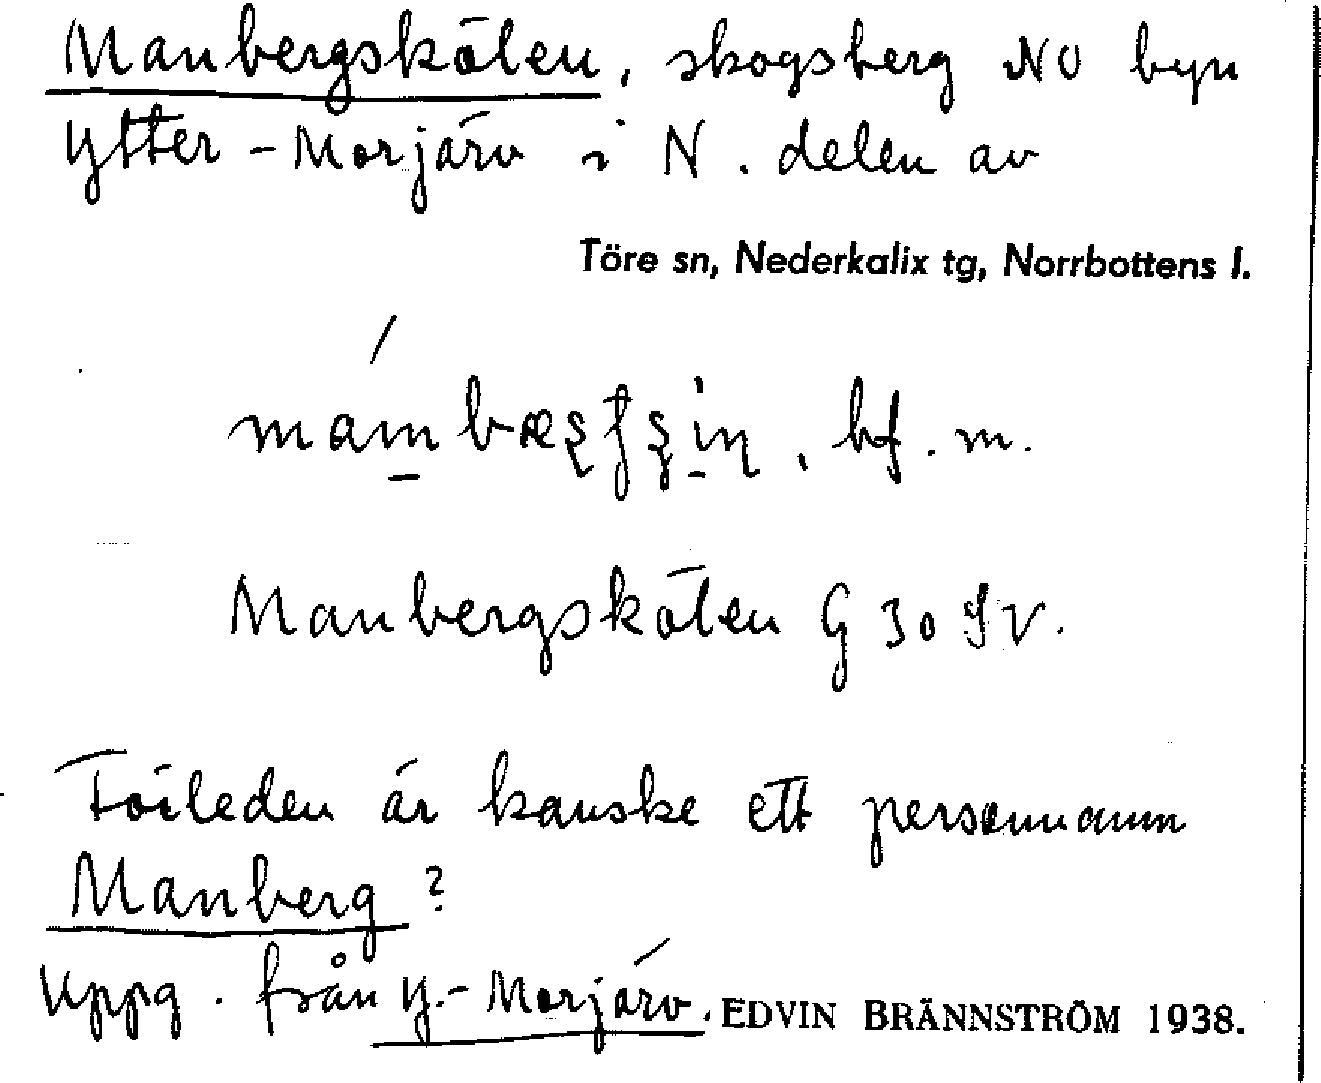 Manbergskölen, skogsberg NO byn
Ytter-Morjärv i N. delen av
Töre sn, Nederkalix tg, Norrbottens l.
bf. m.
Manbergskölen G 30 SV.
Förleden är kanske ett personnamn
Manberg?
Uppg. från Y.-Morjärv. EDVIN BRÄNNSTRÖM 1938.